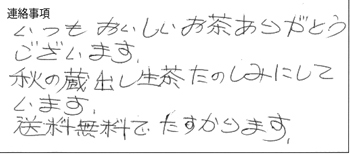 連絡事項
いつもおいしいお茶ありがとう
ございます。
秋の蔵出し生茶たのしみにして
います。
送料無料でたすかります。